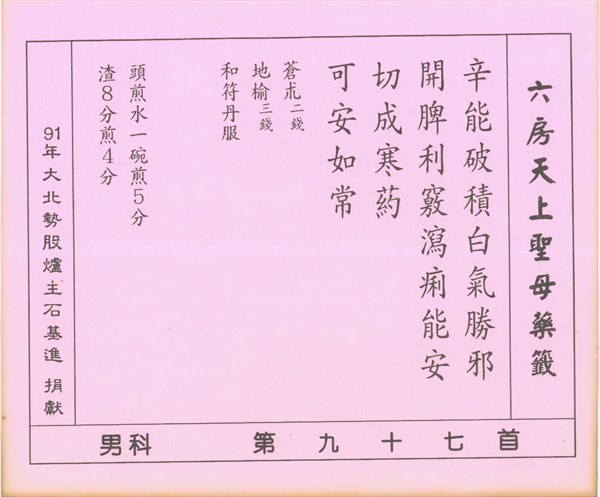 六房天上聖母藥籤
辛能破積白氣勝邪
開脾利竅瀉痢能安
切成寒葯
可安如常
蒼朮二錢
地榆三錢
和符丹服
頭煎水一碗煎5分
渣8分煎4分
91年大北勢股爐主石基進 捐獻
首七十九第 男科